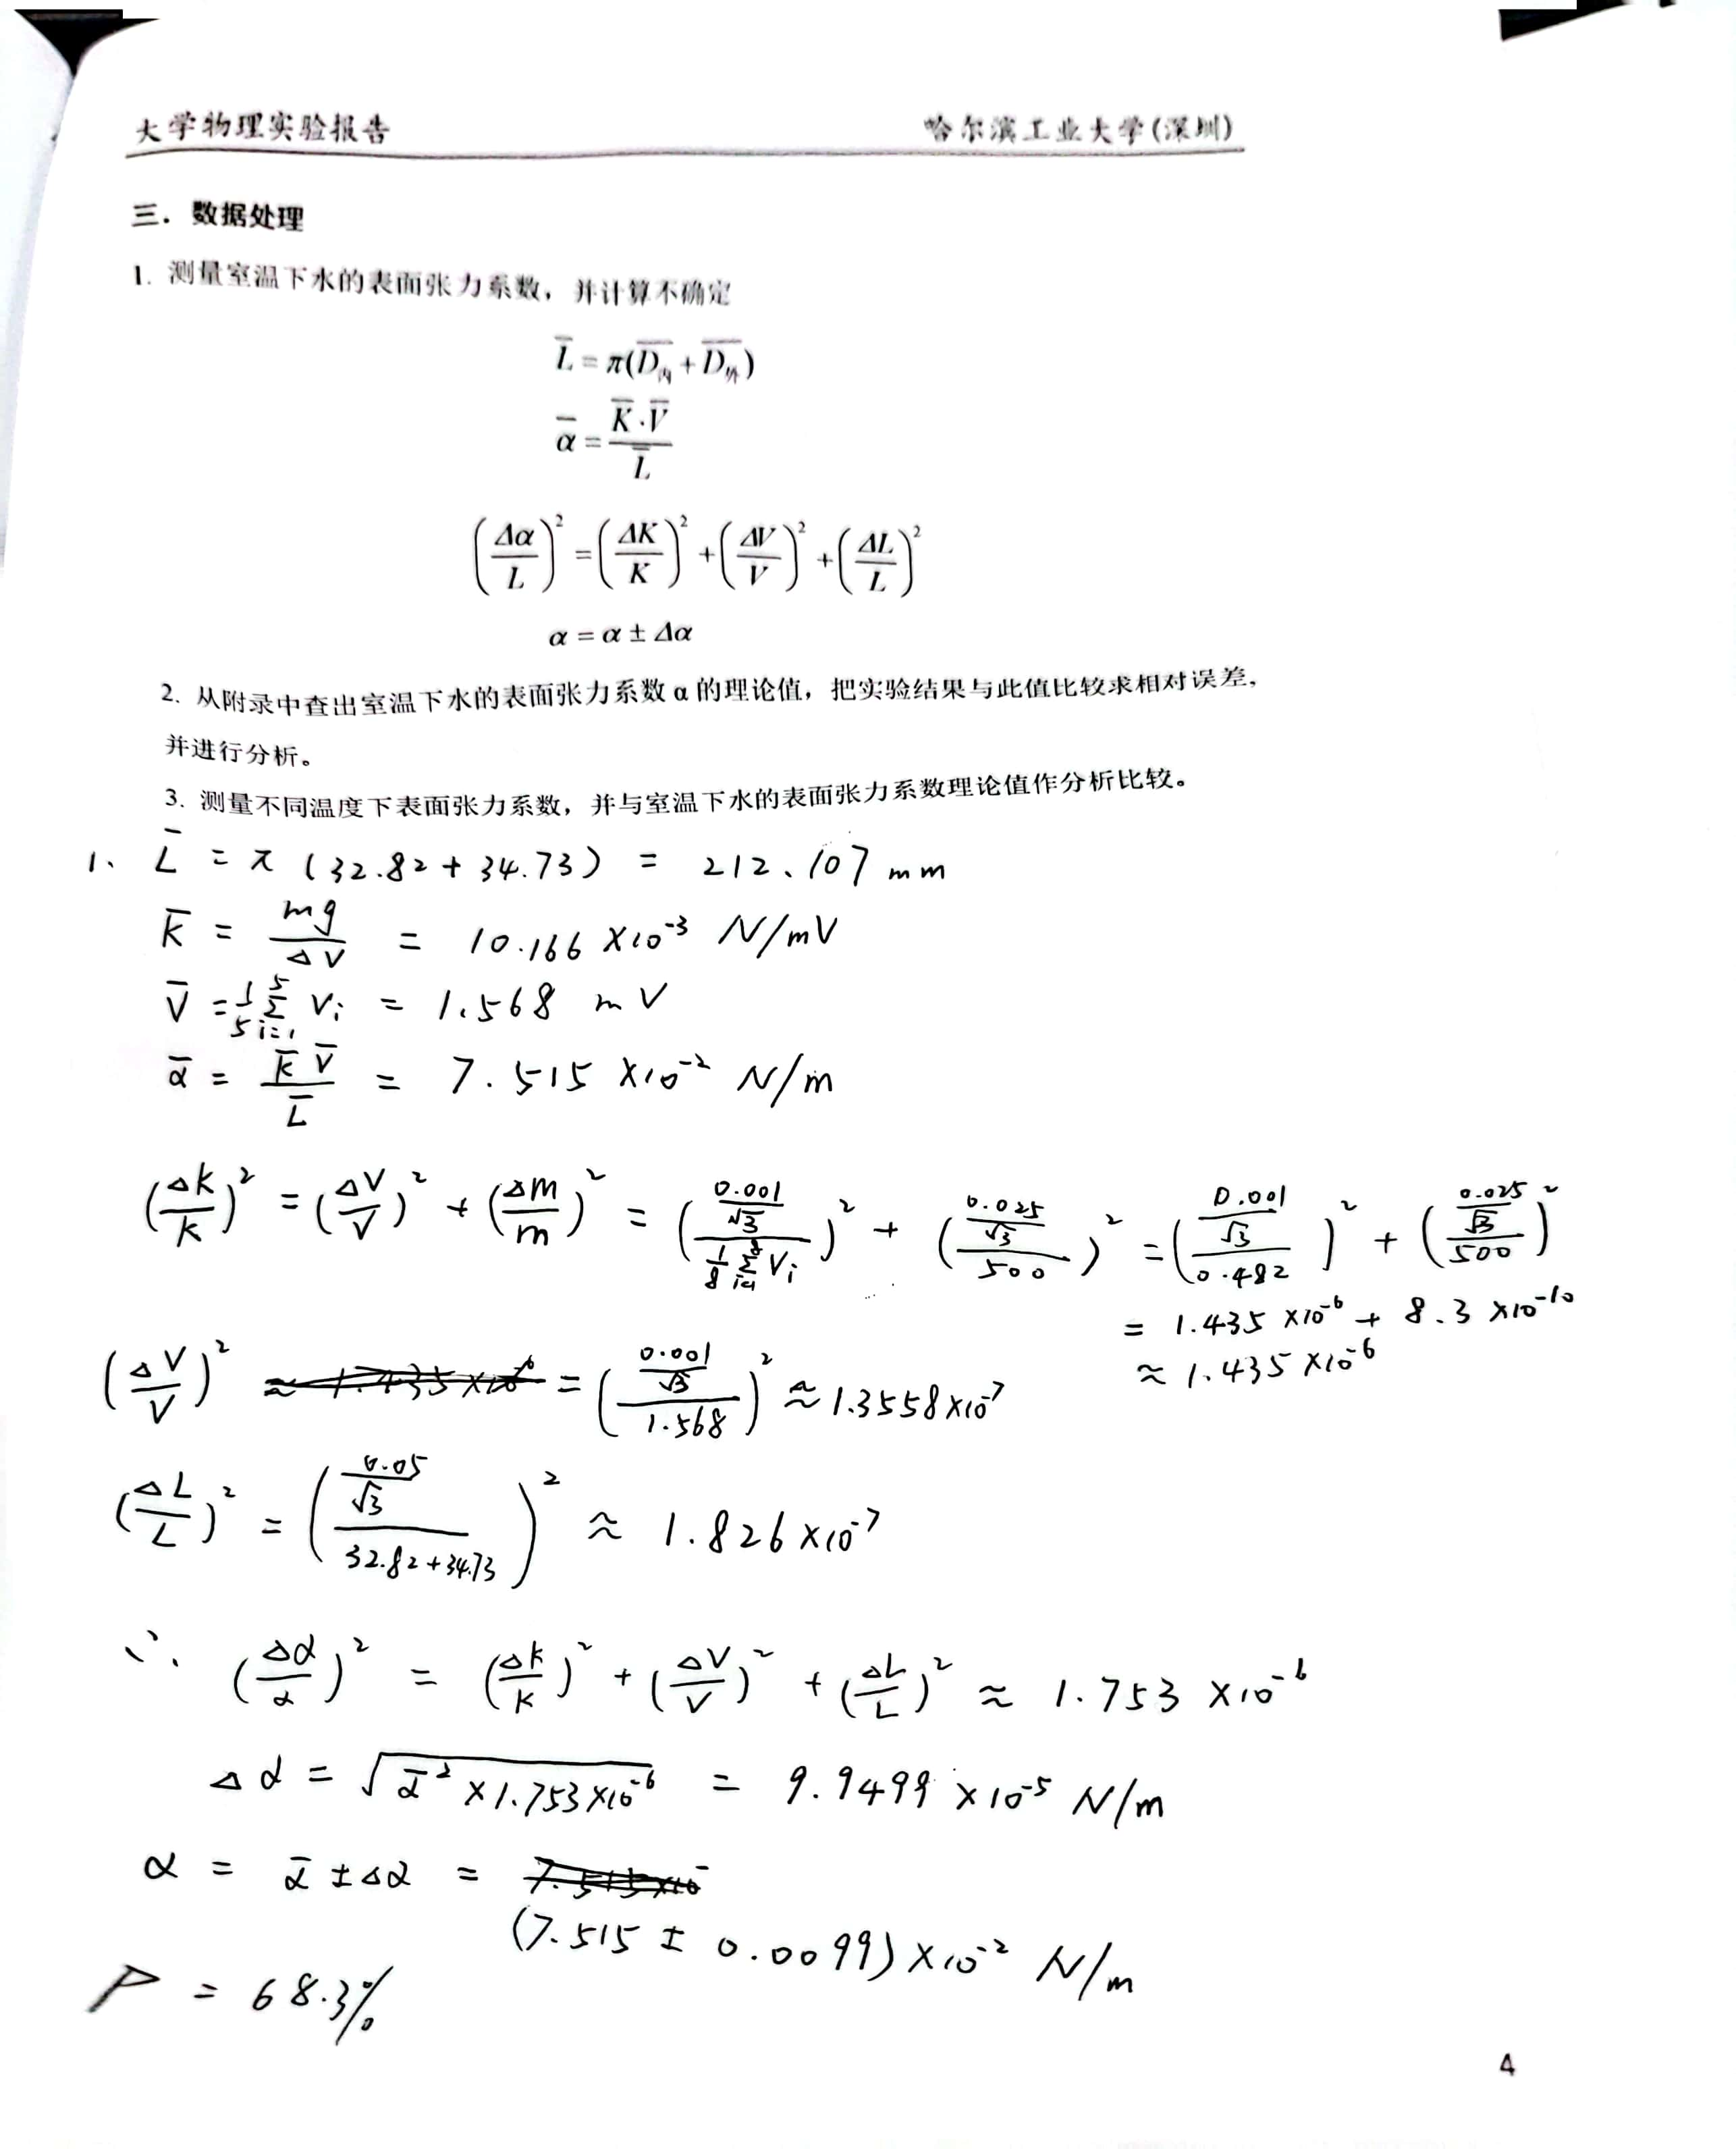 大学物理实验报告 哈尔滨工业大学(深圳)
三. 数据处理
1. 测量室温下水的表面张力系数，并计算不确定
L̅ = π(D̅内 + D̅外)
α̅ = K̅·V̅ / L̅
(Δα/L)² = (ΔK/K)² + (ΔV/V)² + (ΔL/L)²
α = α ± Δα
2. 从附录中查出室温下水的表面张力系数 α 的理论值，把实验结果与此值比较求相对误差，
并进行分析。
3. 测量不同温度下表面张力系数，并与室温下水的表面张力系数理论值作分析比较。
1、 L̅ = π (32.82 + 34.73) = 212.107 mm
K̅ = mg/ΔV = 10.166 ×10⁻³ N/mV
V̅ = 1/5 Σ_{i=1}^{5} Vi = 1.568 mV
α̅ = K̅ V̅ / L̅ = 7.515 ×10⁻² N/m
(Δk/k)² = (ΔV/V)² + (Δm/m)² = ((0.001/√3)/(1/8 Σ_{i=1}^{8} Vi))² + ((0.025/√3)/500)² = ((0.001/√3)/0.482)² + ((0.025/√3)/500)²
= 1.435 ×10⁻⁶ + 8.3 ×10⁻¹⁰
≈ 1.435 ×10⁻⁶
(ΔV/V)² = ((0.001/√3)/1.568)² ≈ 1.3558×10⁻⁷
(ΔL/L)² = ((0.05/√3)/(32.82+34.73))² ≈ 1.826×10⁻⁷
∴ (Δα/α)² = (Δk/k)² + (ΔV/V)² + (ΔL/L)² ≈ 1.753 ×10⁻⁶
Δα = √(α̅² ×1.753×10⁻⁶) = 9.9499 ×10⁻⁵ N/m
α = α̅ ± Δα =
(7.515 ± 0.0099)×10⁻² N/m
P = 68.3%
4